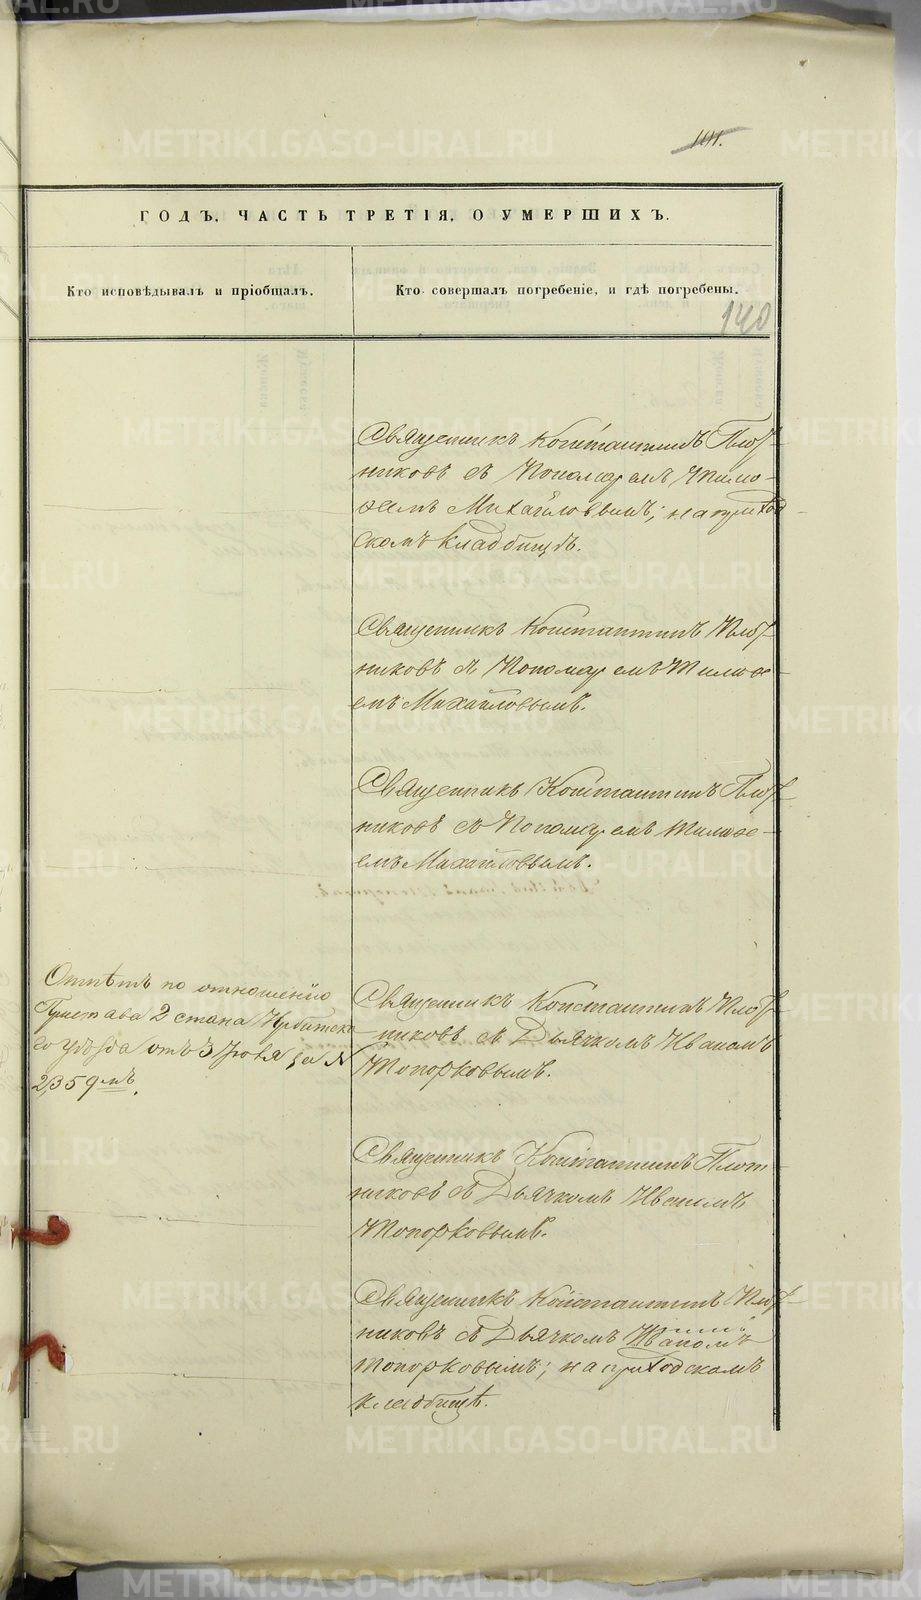 141.
ГОДЪ, ЧАСТЬ ТРЕТІЯ, О УМЕРШИХЪ.
Кто исповѣдывалъ и пріобщалъ.
Кто совершалъ погребеніе, и гдѣ погребены.
140
Священникъ Константинъ Плот-
никовъ съ Пономаремъ Тимо-
ѳеемъ Михайловымъ; на приход-
скомъ кладбищѣ.
Священникъ Константинъ Плот-
никовъ съ Пономаремъ Тимоѳе-
емъ Михайловымъ.
Священникъ Константинъ Плот-
никовъ съ Пономаремъ Тимоѳе-
емъ Михайловымъ.
Отпѣтъ по отношенію
Пристава 2 стана Ирбитска-
го уѣзда отъ 3 Іюня за №
235
Священникъ Константинъ Плот-
никовъ съ Дьячкомъ Иваномъ
Топорковымъ.
Священникъ Константинъ Плот-
никовъ съ Дьячкомъ Иваномъ
Топорковымъ.
Священникъ Константинъ Плот-
никовъ съ Дьячкомъ Иваномъ
Топорковымъ; на приходскомъ
кладбищѣ.
METRIKI.GASO-URAL.RU